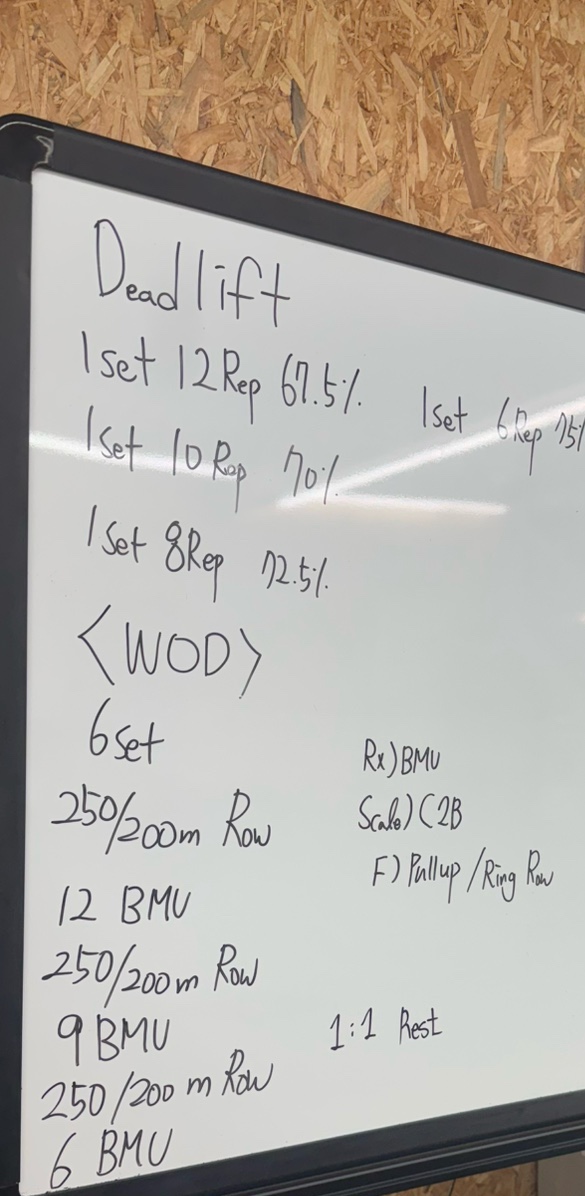 Deadlift
1set 12Rep 67.5%
1set 6Rep 75%
1set 10Rep 70%
1set 8Rep 72.5%
<WOD>
6set
250/200m Row
12 BMU
250/200m Row
9 BMU
250/200m Row
6 BMU
Rx) BMU
Scale) C2B
F) Pullup / Ring Row
1:1 Rest